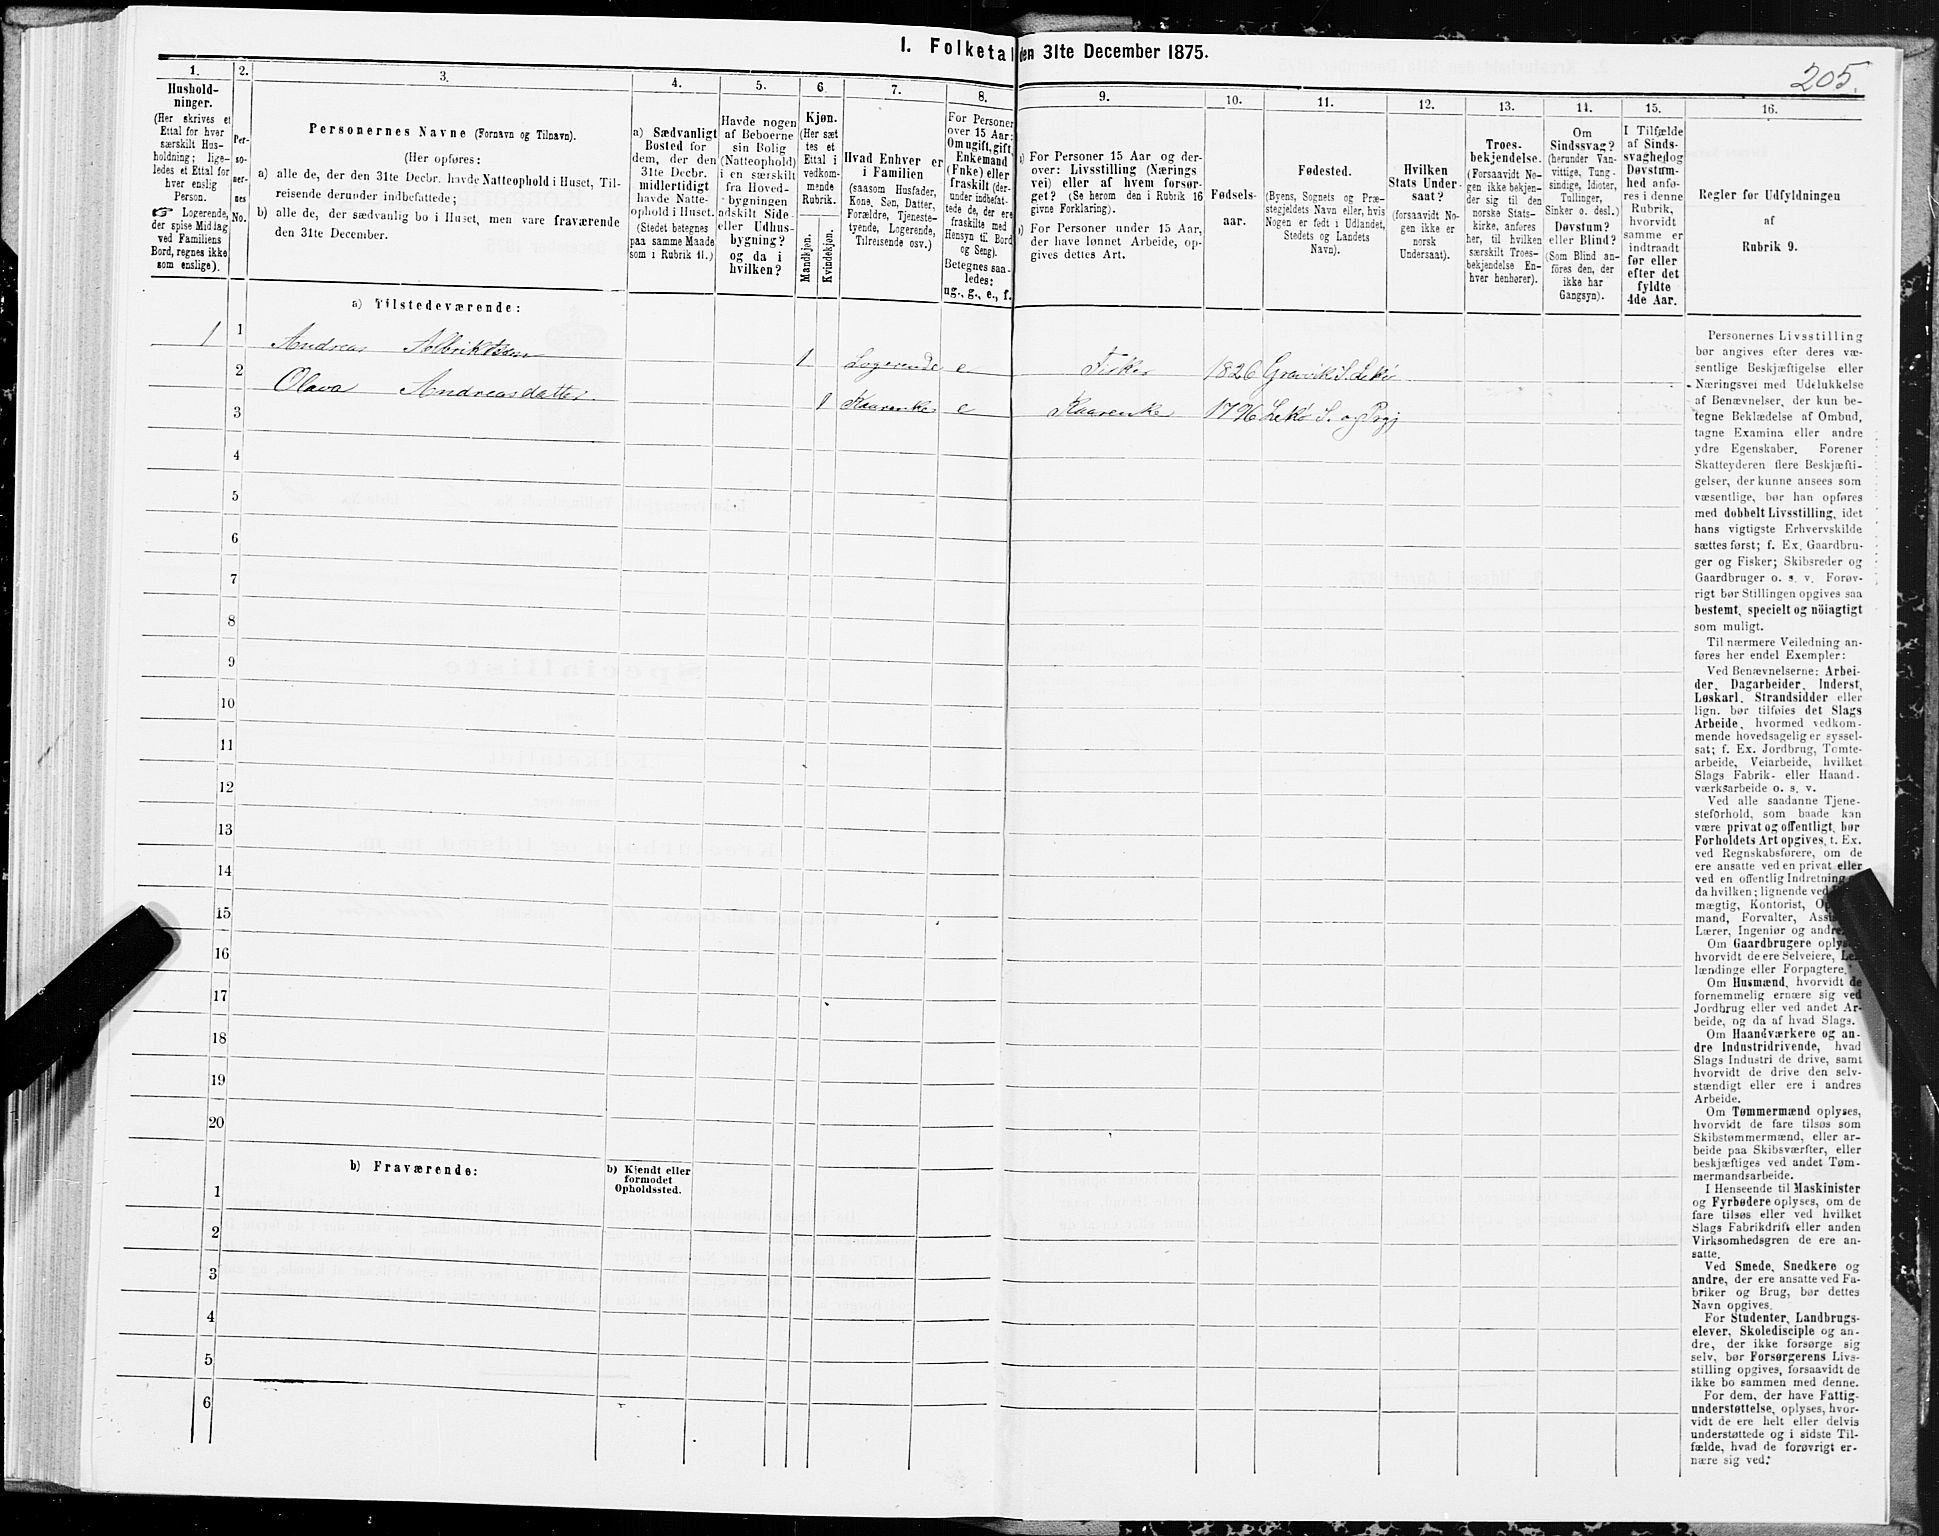 I. Folketal den 31te December 1875.
205.
1.
Hushold-
ninger.
(Her skrives et
Ettal for hver
særskilt Hus-
holdning; lige-
ledes et Ettal for
hver enslig
Person.
☞ Logerende,
der spise Middag
ved Familiens
Bord, regnes ikke
som enslige).
2.
Per-
so-
ner-
nes
No.
3.
Personernes Navne (Fornavn og Tilnavn).
(Her opføres:
a) alle de, der den 31te Decbr. havde Natteophold i Huset, Til-
reisende derunder indbefattede;
b) alle de, der sædvanlig bo i Huset, men vare fraværende
den 31te December.
4.
a) Sædvanligt
Bosted for
dem, der den
31te Decbr.
midlertidigt
havde Natte-
ophold i Huset.
(Stedet betegnes
paa samme Maade
som i Rubrik 11.)
5.
Havde nogen
af Beboerne
sin Bolig
(Natteophold)
i en særskilt
fra Hoved-
bygningen
adskilt Side-
eller Udhus-
bygning?
og da i
hvilken?
6.
Kjøn.
(Her sæt
tes et
Ettal i
vedkom-
mende
Rubrik.
Mandkjøn.
Kvindekjøn.
7.
Hvad Enhver er
i Familien
(saasom Husfader,
Kone, Søn, Datter,
Forældre, Tjeneste-
tyende, Logerende,
Tilreisende osv.)
8.
For Personer
over 15 Aar:
Om ugift, gift,
Enkemand
(Enke) eller
fraskilt (der-
under indbefat-
tede de, der ere
fraskilte med
Hensyn til Bord
og Seng).
Betegnes saa-
ledes:
ug., g., e., f.
9.
a) For Personer 15 Aar og der-
over: Livsstilling (Nærings
vei) eller af hvem forsør-
get? (Se herom den i Rubrik 16
givne Forklaring).
b) For Personer under 15 Aar,
der have lønnet Arbeide, op-
gives dettes Art.
10.
Fødsels-
aar.
11.
Fødested.
(Byens, Sognets og Præ-
stegjeldets Navn eller, hvis
Nogen er født i Udlandet,
Stedets og Landets
Navn).
12.
Hvilken
Stats Under-
saat?
(forsaavidt No-
gen ikke er
norsk
Undersaat).
13.
Troes-
bekjendelse.
(Forsaavidt No-
gen ikke bekjen-
der sig til den
norske Stats-
kirke, anføres
her, til hvilken
særskilt Troes-
bekjendelse En-
hver henhører).
14.
Om
Sindssvag?
(herunder Van-
vittige, Tung-
sindige, Idioter,
Tullinger,
Sinker o. desl.)
Døvstum?
eller Blind?
(Som Blind an-
føres den, der
ikke har
Gangsyn).
15.
I Tilfælde
af Sinds-
svaghed og
Døvstum-
hed anfø-
res i denne
Rubrik,
hvorvidt
samme er
indtraadt
før eller
efter det
fyldte
4de Aar.
16.
Regler for Udfyldningen
af
Rubrik 9.
a) Tilstedeværende:
1 1 Andreas Albriktsen 1 Logerende e Fisker 1826 Gravvik S. Lekø
2 Olava Andreasdatter 1 Kaarenke e Kaarenke 1796 Lekø S. og Prgj
3
4
5
6
7
8
9
10
11
12
13
14
15
16
17
18
19
20
b) Fraværende:
b) Kjendt eller
formodet
Opholdssted.
1
2
3
4
5
6
Personernes Livsstilling
bør angives efter deres væ-
sentlige Beskjæftigelse eller
Næringsvei med Udelukkelse
af Benævnelser, der kun be-
tegne Beklædelse af Ombud,
tagne Examina eller andre
ydre Egenskaber. Forener
Skatteyderen flere Beskjæfti-
gelser, der kunne ansees som
væsentlige, bør han opføres
med dobbelt Livsstilling, idet
hans vigtigste Erhvervskilde
sættes først; f. Ex. Gaardbru-
ger og Fisker; Skibsreder og
Gaardbruger o. s. v. Forøv-
rigt bør Stillingen opgives saa
bestemt, specielt og nøiagtigt
som muligt.
Til nærmere Veiledning an-
føres her endel Exempler:
Ved Benævnelserne: Arbei-
der, Dagarbeider, Inderst,
Løskarl, Strandsidder eller
lign. bør tilføies det Slags
Arbeide, hvormed vedkom-
mende hovedsagelig er syssel-
sat; f. Ex. Jordbrug, Tomte-
arbeide, Veiarbeide, hvilket
Slags Fabrik- eller Haand-
værksarbeide o. s. v.
Ved alle saadanne Tjene-
steforhold, som baade kan
være privat og offentligt, bør
Forholdets Art opgives, f. Ex.
ved Regnskabsførere, om de
ere ansatte ved en privat eller
ved en offentlig Indretning
da hvilken; lignende ved
mægtig, Kontorist, Op
mand, Forvalter, Assi
Lærer, Ingeniør og andre.
Om Gaardbrugere oplys
hvorvidt de ere Selveiere, Lei
lændinge eller Forpagtere.
Om Husmænd, hvorvidt de
fornemmelig ernære sig ved
Jordbrug eller ved andet Ar-
beide, og da af hvad Slags.
Om Haandværkere og an-
dre Industridrivende, hvad
Slags Industri de drive, samt
hvorvidt de drive den selv-
stændigt eller ere i andres
Arbeide.
Om Tømmermænd oplyses,
hvorvidt de fare tilsøs som
Skibstømmermænd, eller ar-
beide paa Skibsværfter, eller
beskjæftiges ved andet Tøm-
mermandsarbeide.
I Henseende til Maskinister
og Fyrbødere oplyses, om de
fare tilsøs eller ved hvilket
Slags Fabrikdrift eller anden
Virksomhedsgren de ere an-
satte.
Ved Smede, Snedkere og
andre, der ere ansatte ved Fa-
briker og Brug, bør dettes
Navn opgives.
For Studenter, Landbrugs-
elever, Skoledisciple og an-
dre, der ikke forsørge sig
selv, bør Forsørgerens Livs-
stilling opgives, forsaavidt de
ikke bo sammen med denne.
For dem, der have Fattig-
understøttelse, oplyses, hvor-
vidt de ere helt eller delvis
understøttede og i sidste Til-
fælde, hvad de forøvrigt er-
nære sig ved.